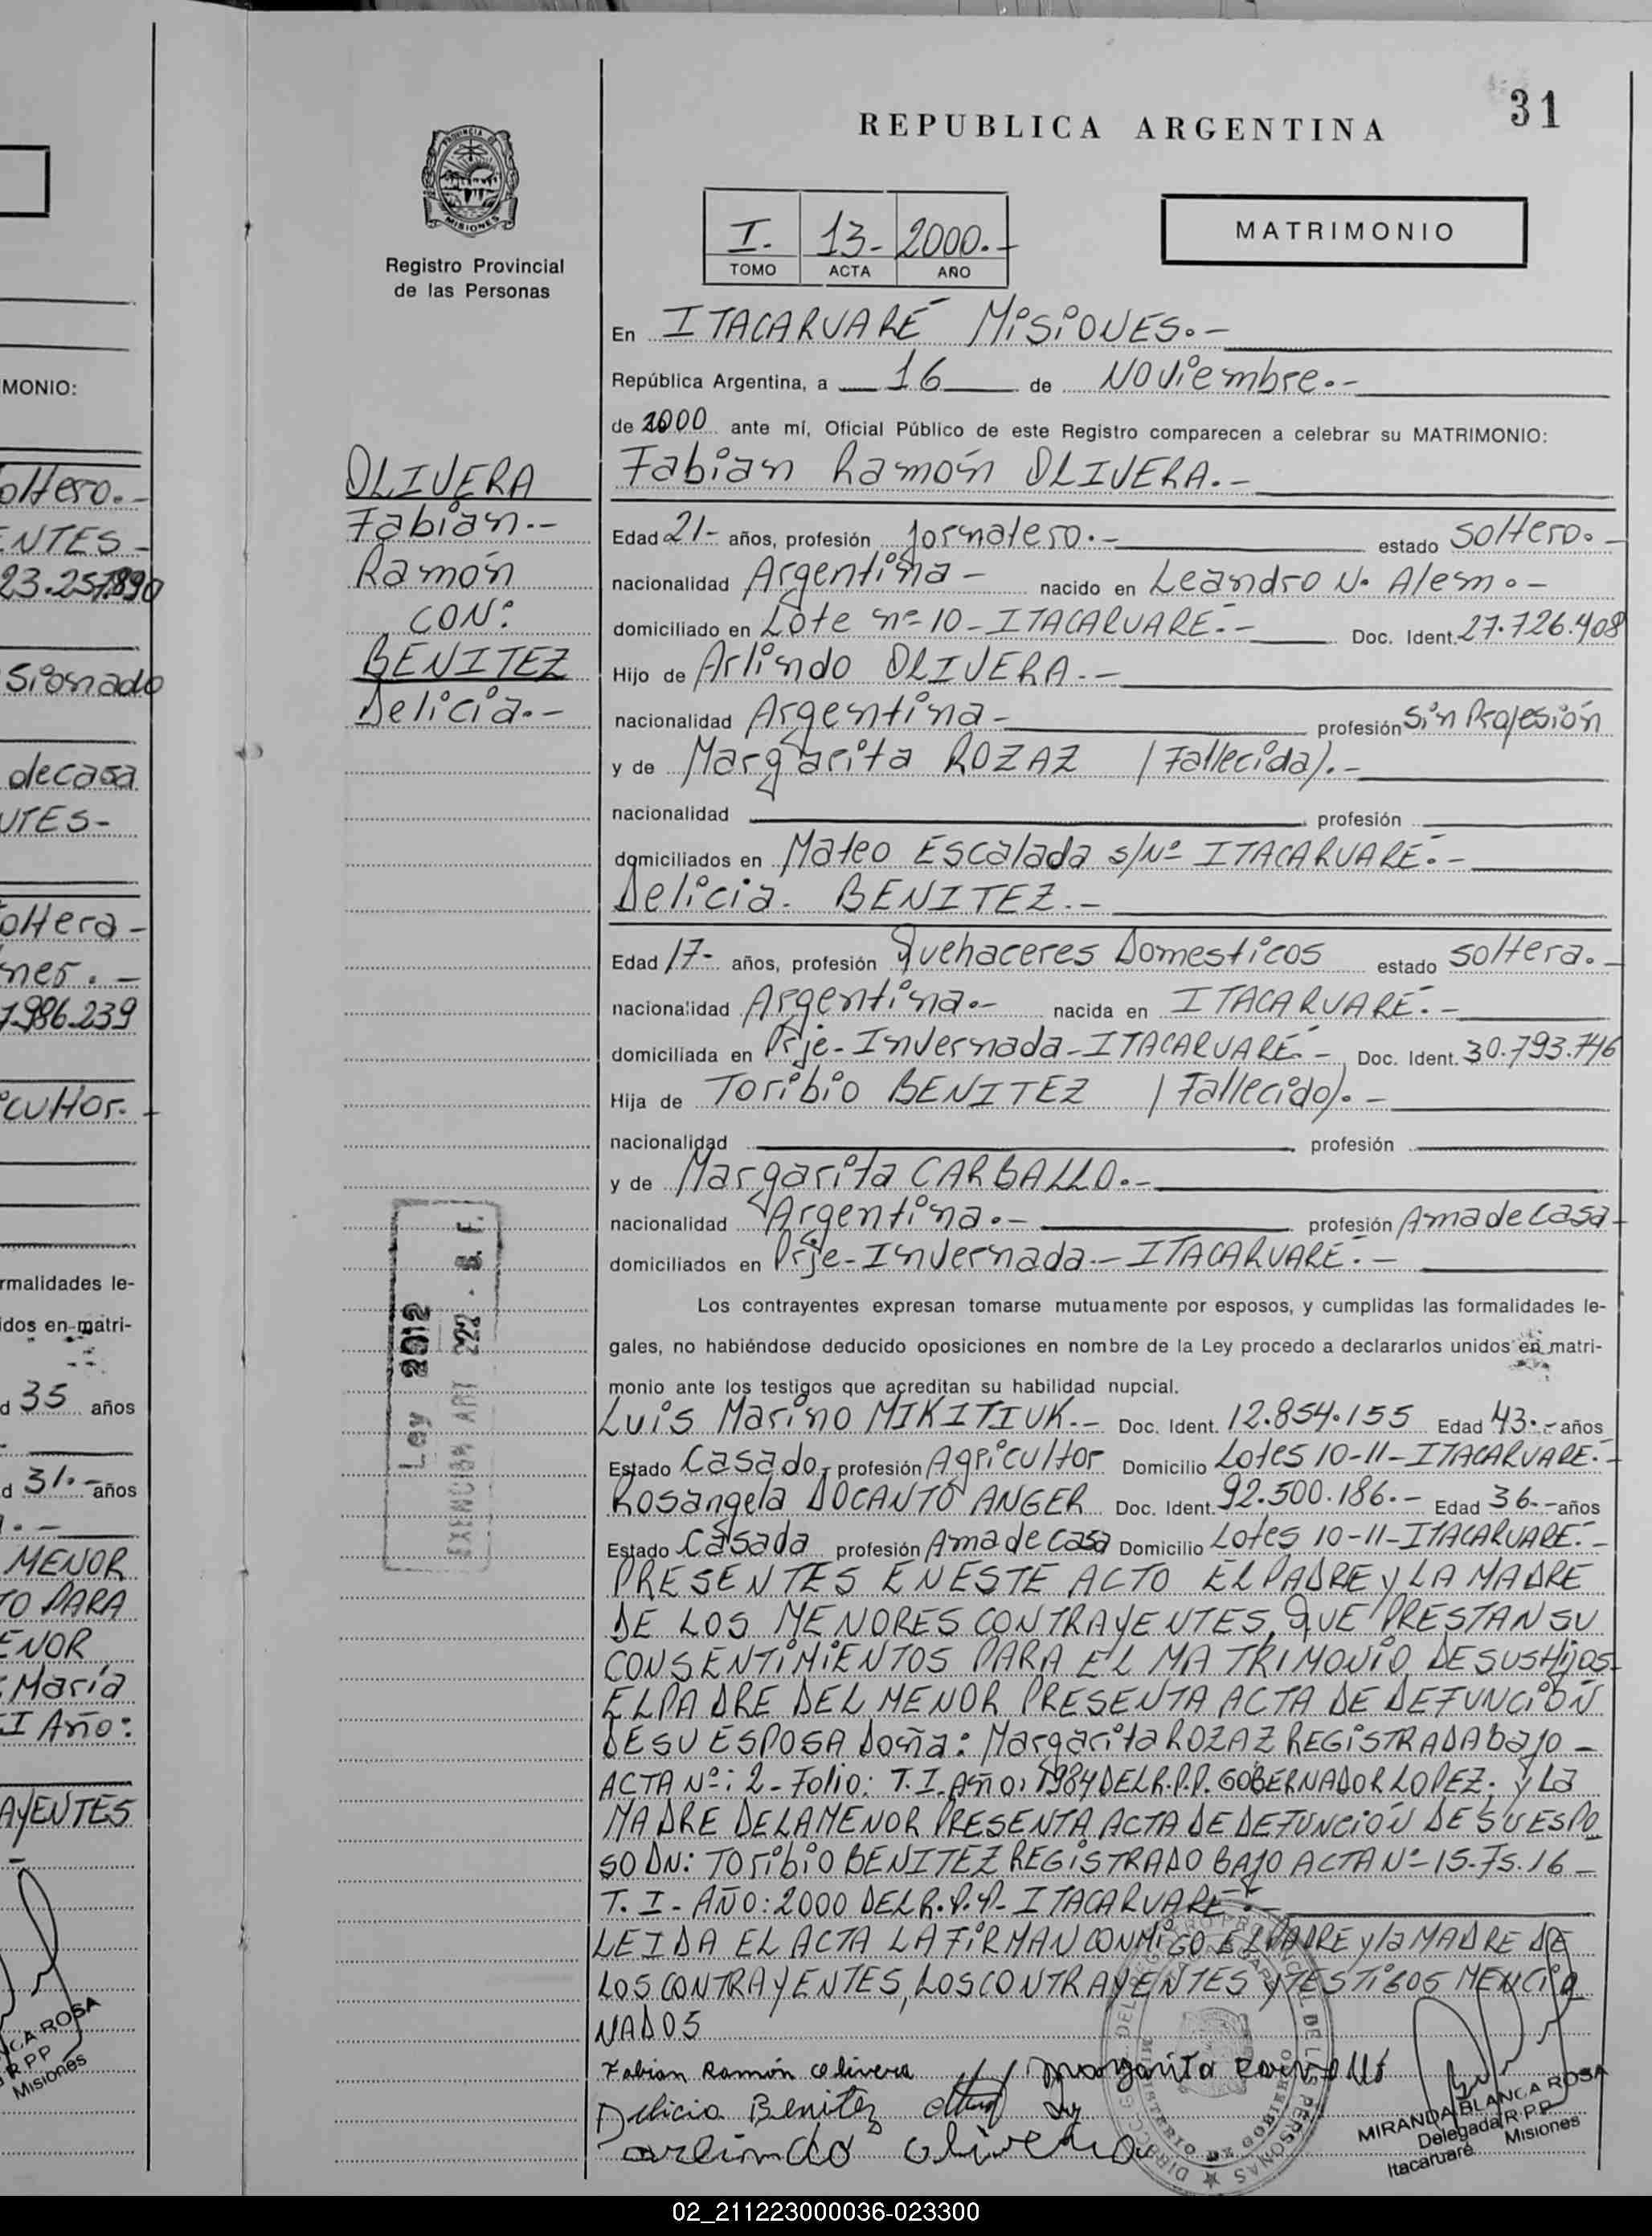 MONIO:
oltero.-
ENTES-
23.257.890
sionado
decasa
NTES-
oltera-
nes.-
7.986.239
icultor.-
rmalidades le-
idos en matri-
d 35 años
d 31.- años
MENOR
TO PARA
ENOR
María
I Año:
AYENTES
CA ROSA
R.P.P
Misiones
PROVINCIA DE
MISIONES
Registro Provincial
de las Personas
OLIVERA
Fabian.--
Ramón
CON:
BENITEZ
Delicia.-
Ley 2912
EXENCION ART 222 . B. F.
31
REPUBLICA ARGENTINA
I. 13- 2000.-
TOMO ACTA AÑO
MATRIMONIO
En ITACARUARÉ MISIONES.-
República Argentina, a 16 de Noviembre.-
de 2000 ante mí, Oficial Público de este Registro comparecen a celebrar su MATRIMONIO:
Fabian Ramón OLIVERA.-
Edad 21- años, profesión Jornalero.- estado soltero.-
nacionalidad Argentina- nacido en Leandro N. Alem.-
domiciliado en Lote nº 10-ITACARUARÉ.- Doc. Ident. 27.726.408
Hijo de Arlindo OLIVERA.-
nacionalidad Argentina- profesión Sin Profesión
y de Margarita ROZAZ (Fallecida).-
nacionalidad profesión
domiciliados en Mateo Escalada s/Nº ITACARUARÉ.-
Delicia. BENITEZ.-
Edad 17- años, profesión Quehaceres Domesticos estado soltera.-
nacionalidad Argentina.- nacida en ITACARUARÉ.-
domiciliada en Prje-Invernada-ITACARUARÉ.- Doc. Ident. 30.793.746
Hija de Toribio BENITEZ (Fallecido).-
nacionalidad profesión
y de Margarita CARBALLO.-
nacionalidad Argentina.- profesión Ama de casa-
domiciliados en Prje-Invernada.-ITACARUARÉ.-
Los contrayentes expresan tomarse mutuamente por esposos, y cumplidas las formalidades le-
gales, no habiéndose deducido oposiciones en nombre de la Ley procedo a declararlos unidos en matri-
monio ante los testigos que acreditan su habilidad nupcial.
Luis Marino MIKITIUK.- Doc. Ident. 12.854.155 Edad 43.- años
Estado Casado- profesión Agricultor Domicilio Lotes 10-11-ITACARUARE.-
Rosangela DOCANTO ANGER Doc. Ident. 92.500.186.- Edad 36.- años
Estado Casada profesión Ama de casa Domicilio Lotes 10-11-ITACARUARE.-
PRESENTES EN ESTE ACTO EL PADRE y LA MADRE
DE LOS MENORES CONTRAYENTES, QUE PRESTAN SU
CONSENTIMIENTOS PARA EL MATRIMONIO DE SUS Hijos-
EL PADRE DEL MENOR PRESENTA ACTA DE DEFUNCIÓN
DE SU ESPOSA Doña: Margarita ROZAZ REGISTRADA bajo-
ACTA Nº: 2-Folio: T.I. Año: 1984 DEL R.P.P. GOBERNADOR LOPEZ. y La
MADRE DE LA MENOR PRESENTA ACTA DE DEFUNCIÓN DE SU ESPO
SO DN: TORIBIO BENITEZ REGISTRADO BAJO ACTA Nº-15-Fs.16-
T. I-AÑO: 2000 DEL R.P.P-ITACARUARE.-
LEIDA EL ACTA LA FIRMAN CONMIGO EL PADRE y la MADRE DE
LOS CONTRAYENTES, LOS CONTRAYENTES y TESTIGOS MENCIO
NADOS
Fabian Ramón Olivera Margarita Carvallo
Delicia Benitez
arlindo olivera
MIRANDA BLANCA ROSA
Delegada R.P.P
Itacaruaré Misiones
02_211223000036-023300